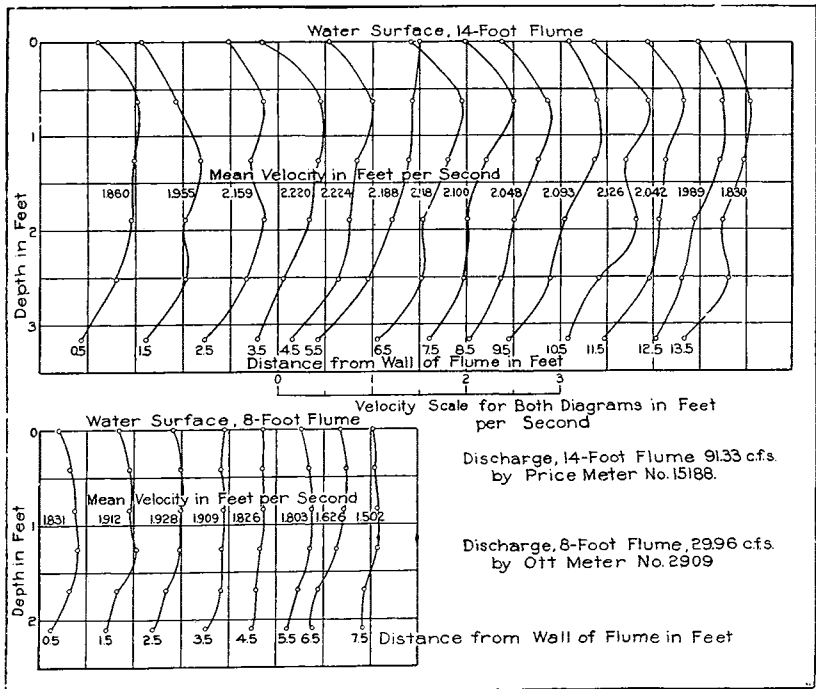 Water Surface, 14-Foot Flume
0
1
2
3
Depth in Feet
Mean Velocity in Feet per Second
1.860 1.955 2.159 2.220 2.224 2.188 2.118 2.100 2.048 2.093 2.126 2.042 1.989 1.830
0.5 1.5 2.5 3.5 4.5 5.5 6.5 7.5 8.5 9.5 10.5 11.5 12.5 13.5
Distance from Wall of Flume in Feet
0 1 2 3
Velocity Scale for Both Diagrams in Feet
per Second
Water Surface, 8-Foot Flume
0
1
2
Depth in Feet
Mean Velocity in Feet per Second
1.831 1.912 1.928 1.909 1.826 1.803 1.626 1.502
0.5 1.5 2.5 3.5 4.5 5.5 6.5 7.5 Distance from Wall of Flume in Feet
Discharge, 14-Foot Flume 91.33 c.f.s.
by Price Meter No. 15188.
Discharge, 8-Foot Flume, 29.96 c.f.s.
by Ott Meter No. 2909